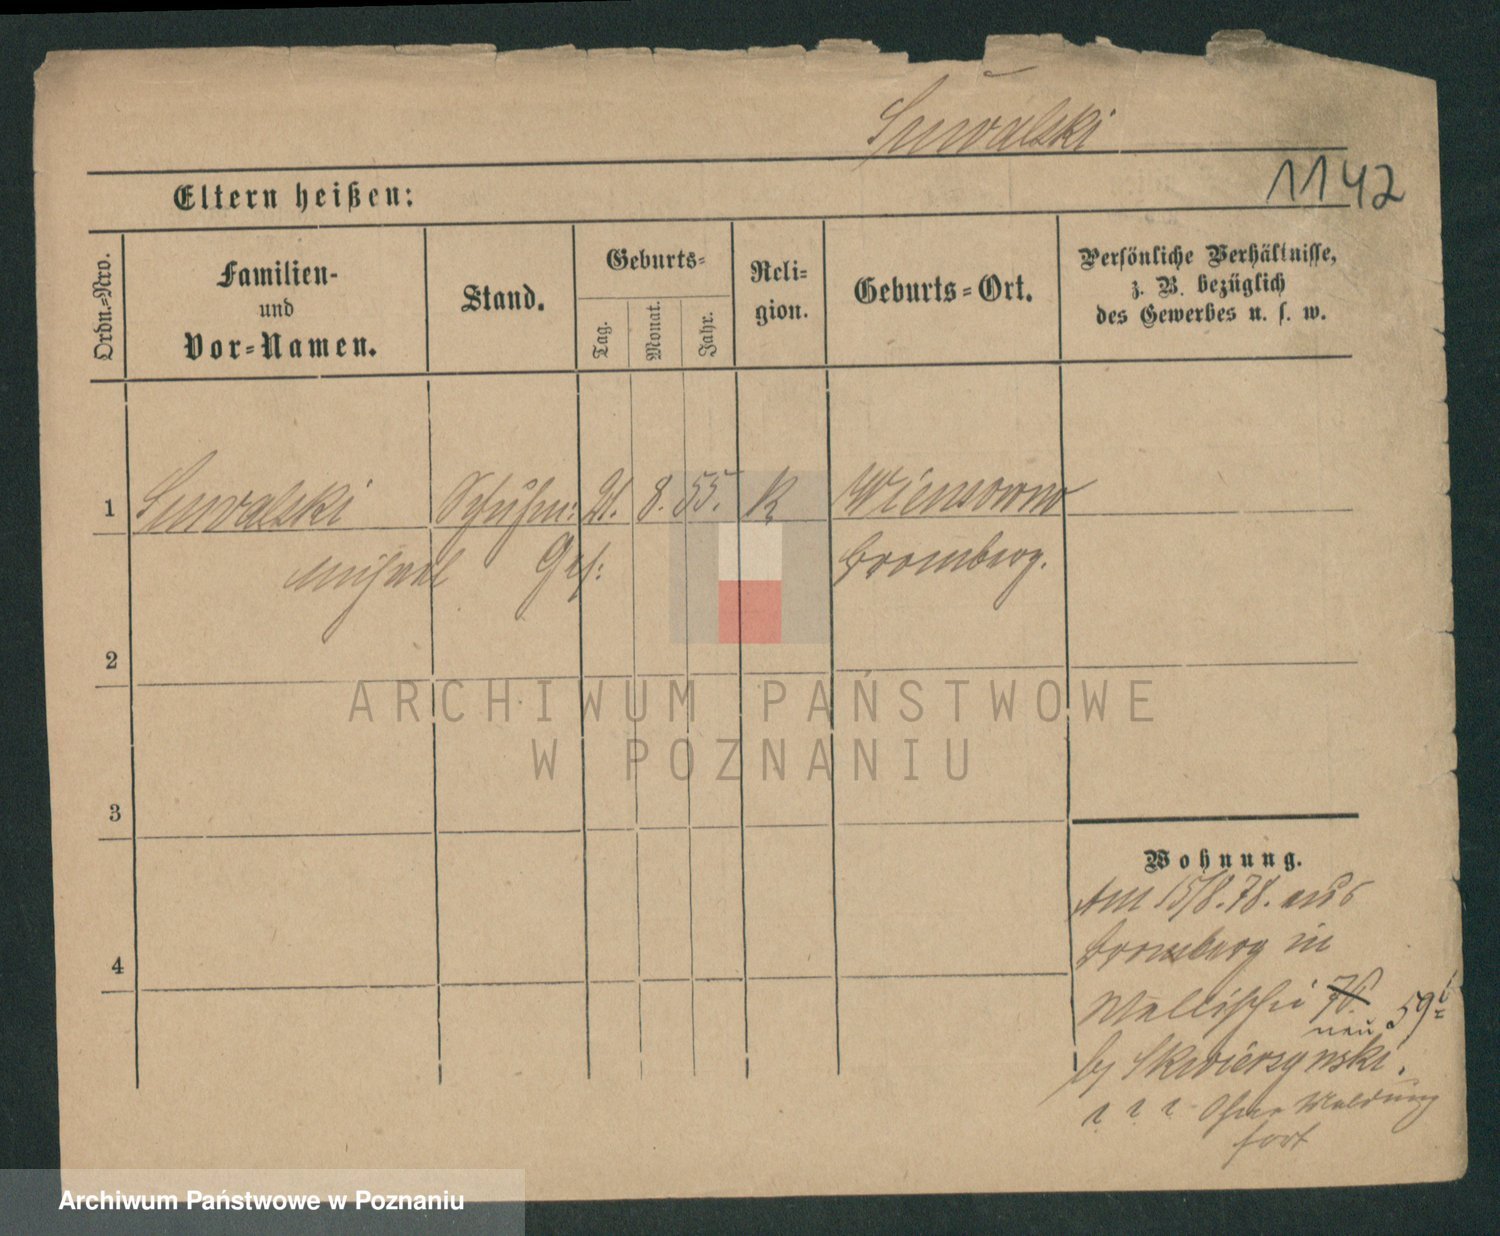 Suwalski
1142
Eltern heißen:
Ordn.-Nro.
Familien-
und
Vor-Namen.
Stand.
Geburts-
Tag.
Monat.
Jahr.
Reli-
gion.
Geburts-Ort.
Persönliche Verhältnisse,
z. B. bezüglich
des Gewerbes u. s. w.
1 Suwalski Schuhm: 21. 8. 55. K
Michael Ges: Bromberg.
2
3
4
Wohnung.
Am 15/8.78. aus
Bromberg in
Wallischei 76. 59b
neu
by Skwierzynski.
? ? ? Ohne Meldung
fort
ARCHIWUM PAŃSTWOWE
W POZNANIU
Archiwum Państwowe w Poznaniu